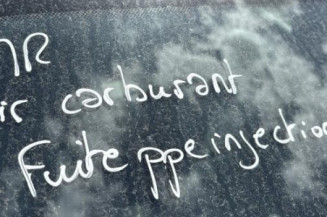 R
ir carburant
Fuite ppe injection